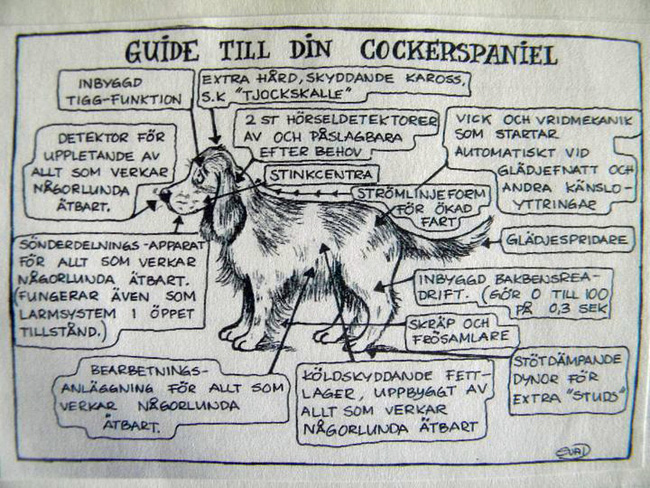 GUIDE TILL DIN COCKERSPANIEL
INBYGGD
TIGG-FUNKTION
EXTRA HÅRD, SKYDDANDE KAROSS.
S.K "TJOCKSKALLE"
DETEKTOR FÖR
UPPLETANDE AV
ALLT SOM VERKAR
NÅGORLUNDA
ÄTBART.
2 ST HÖRSELDETEKTORER
AV OCH PÅSLAGBARA
EFTER BEHOV
VICK OCH VRIDMEKANIK
SOM STARTAR
AUTOMATISKT VID
GLÄDJEFNATT OCH
ANDRA KÄNSLO-
YTTRINGAR
STINKCENTRA
STRÖMLINJEFORM
FÖR ÖKAD
FART
GLÄDJESPRIDARE
SÖNDERDELNINGS-APPARAT
FÖR ALLT SOM VERKAR
NÅGORLUNDA ÄTBART.
(FUNGERAR ÄVEN SOM
LARMSYSTEM I ÖPPET
TILLSTÅND.)
INBYGGD BAKBENSREA-
DRIFT. (GÖR 0 TILL 100
PÅ 0,3 SEK)
SKRÄP OCH
FRÖSAMLARE
BEARBETNINGS-
ANLÄGGNING FÖR ALLT SOM
VERKAR NÅGORLUNDA
ÄTBART.
KÖLDSKYDDANDE FETT-
LAGER, UPPBYGGT AV
ALLT SOM VERKAR
NÅGORLUNDA ÄTBART
STÖTDÄMPANDE
DYNOR FÖR
EXTRA "STUDS"